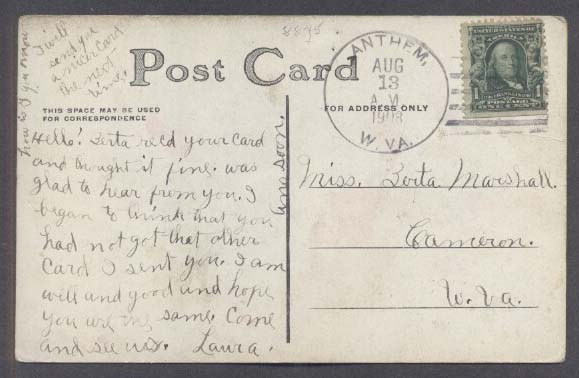 I will
send you
a nicer card
the next
time.
8895
Post Card
THIS SPACE MAY BE USED
FOR CORRESPONDENCE
FOR ADDRESS ONLY
ANTHEM,
AUG
13
A.M.
1908
W. VA.
1
Hello! Zerta rec'd your card
and thought it fine. was
glad to hear from you. I
began to think that you
had not got that other
card I sent you. I am
well and good and hope
you are the same. Come
and see us. Laura.
ans soon.
Miss. Zerta Marshall.
Cameron.
W. Va.